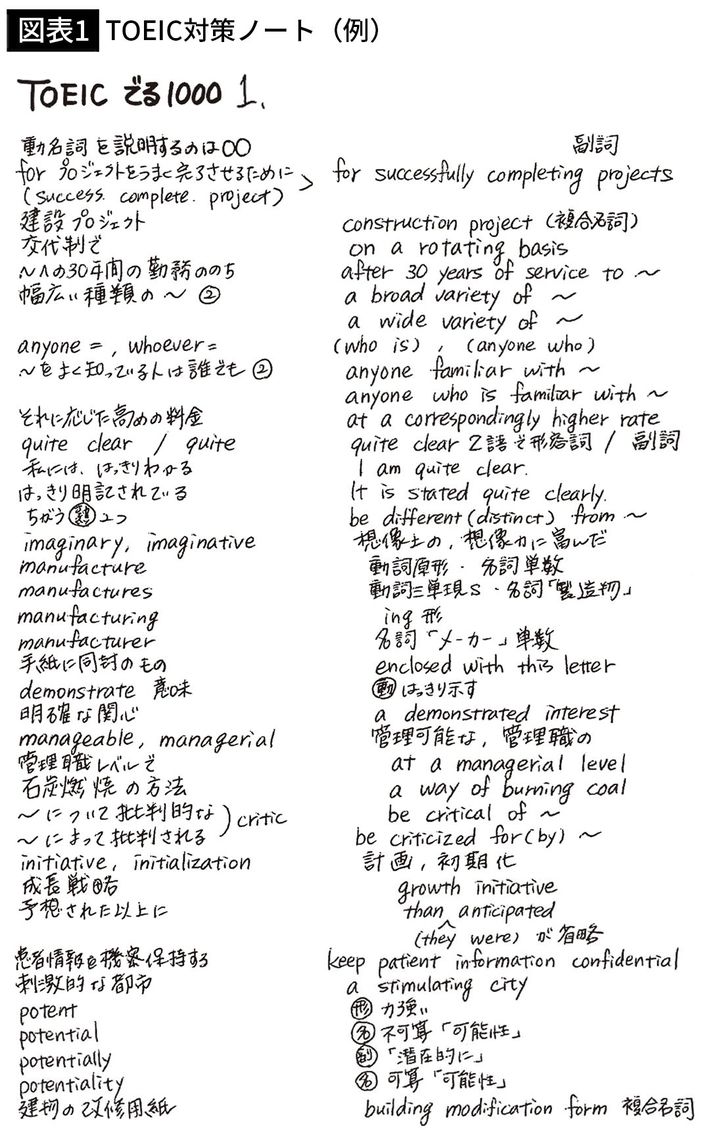 図表1 TOEIC対策ノート（例）
TOEIC でる1000 1.
動名詞を説明するのは○○ 副詞
for プロジェクトをうまく完了させるために for successfully completing projects
(success. complete. project)
建設プロジェクト construction project (複合名詞)
交代制で on a rotating basis
～への30年間の勤務ののち after 30 years of service to ～
幅広い種類の～ ② a broad variety of ～
a wide variety of ～
anyone = , whoever = (who is) , (anyone who)
～をよく知っている人は誰でも ② anyone familiar with ～
anyone who is familiar with ～
それに応じた高めの料金 at a correspondingly higher rate
quite clear / quite quite clear 2語で形容詞 / 副詞
私には、はっきりわかる I am quite clear.
はっきり明記されている It is stated quite clearly.
ちがう 2つ be different (distinct) from ～
imaginary, imaginative 想像上の, 想像力に富んだ
manufacture 動詞原形・名詞単数
manufactures 動詞三単現s・名詞「製造物」
manufacturing ing形
manufacturer 名詞「メーカー」単数
手紙に同封のもの enclosed with this letter
demonstrate 意味 動 はっきり示す
明確な関心 a demonstrated interest
manageable, managerial 管理可能な, 管理職の
管理職レベルで at a managerial level
石炭燃焼の方法 a way of burning coal
～について批判的な be critical of ～
～によって批判される ) critic be criticized for (by) ～
initiative, initialization 計画, 初期化
成長戦略 growth initiative
予想された以上に than anticipated
(they were) が省略
患者情報を機密保持する keep patient information confidential
刺激的な都市 a stimulating city
potent 形 力強い
potential 名 不可算「可能性」
potentially 副 「潜在的に」
potentiality 名 可算「可能性」
建物の改修用紙 building modification form 複合名詞